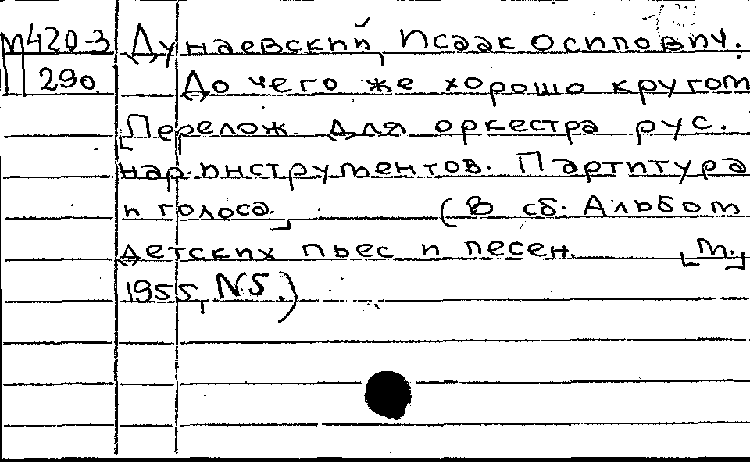 М420-3 Дунаевский, Исаак Осипович.
290 До чего же хорошо кругом
[Перелож. для оркестра рус.
нар. инструментов. Партитура
и голоса] (В сб. Альбом
детских пьес и песен. [М.]
1955, N5.)